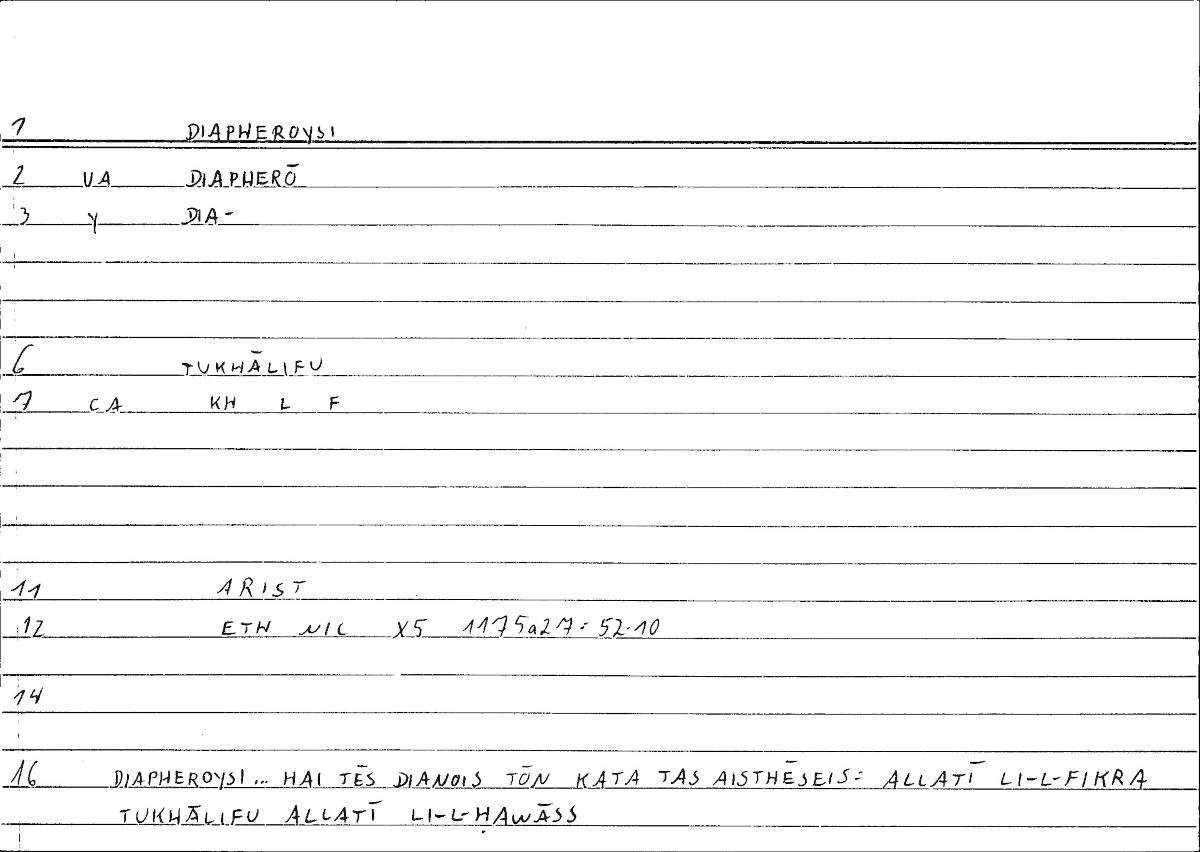 1 DIAPHEROYSI
2 VA DIAPHERŌ
3 Y DIA-
6 TUKHĀLIFU
7 CA KH L F
11 ARIST
12 ETH NIC X5 1175a27: 52.10
14
16 DIAPHEROYSI... HAI TĒS DIANOIS TŌN KATA TAS AISTHĒSEIS: ALLATĪ LI-L-FIKRA
TUKHĀLIFU ALLATĪ LI-L-ḤAWĀSS